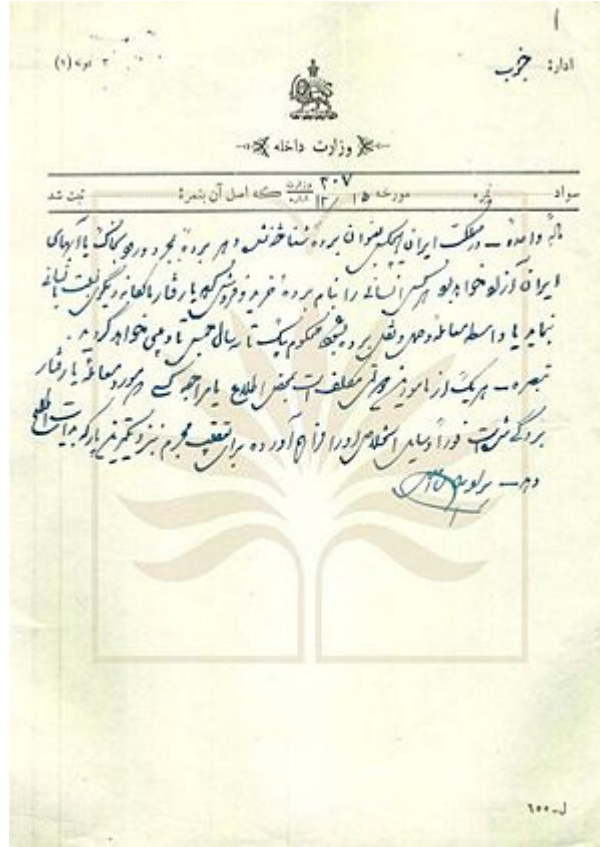 اداره: جنوب
وزارت داخله
سواد نمره مورخه ۱۵ / ۱۲ وزارت ۳۰۷ که اصل آن بنمرهٔ ثبت شد
مادهٔ واحده – در مملکت ایران هیچکس بعنوان برده شناخته نشده و هر برده بمجرد ورود بخاک یا آبهای
ایران آزاد خواهد بود هر کس انسانی را بنام برده خرید و فروش کرده یا رفتار مالکانه دیگری نسبت بانسانی
بنماید یا واسطه معامله و حمل و نقل برده بشود محکوم بیک تا سه سال حبس تأدیبی خواهد گردید.
تبصره – هر یک از مأمورین دولتی مکلف است بمحض اطلاع یا مراجعه کسی که مورد معامله یا رفتار
بردگی شده است فوراً وسایل استخلاص او را فراهم آورده برای تعقیب مجرم بنزدیکترین پارکه بدایت اطلاع
دهد –
ل-۶۵۵